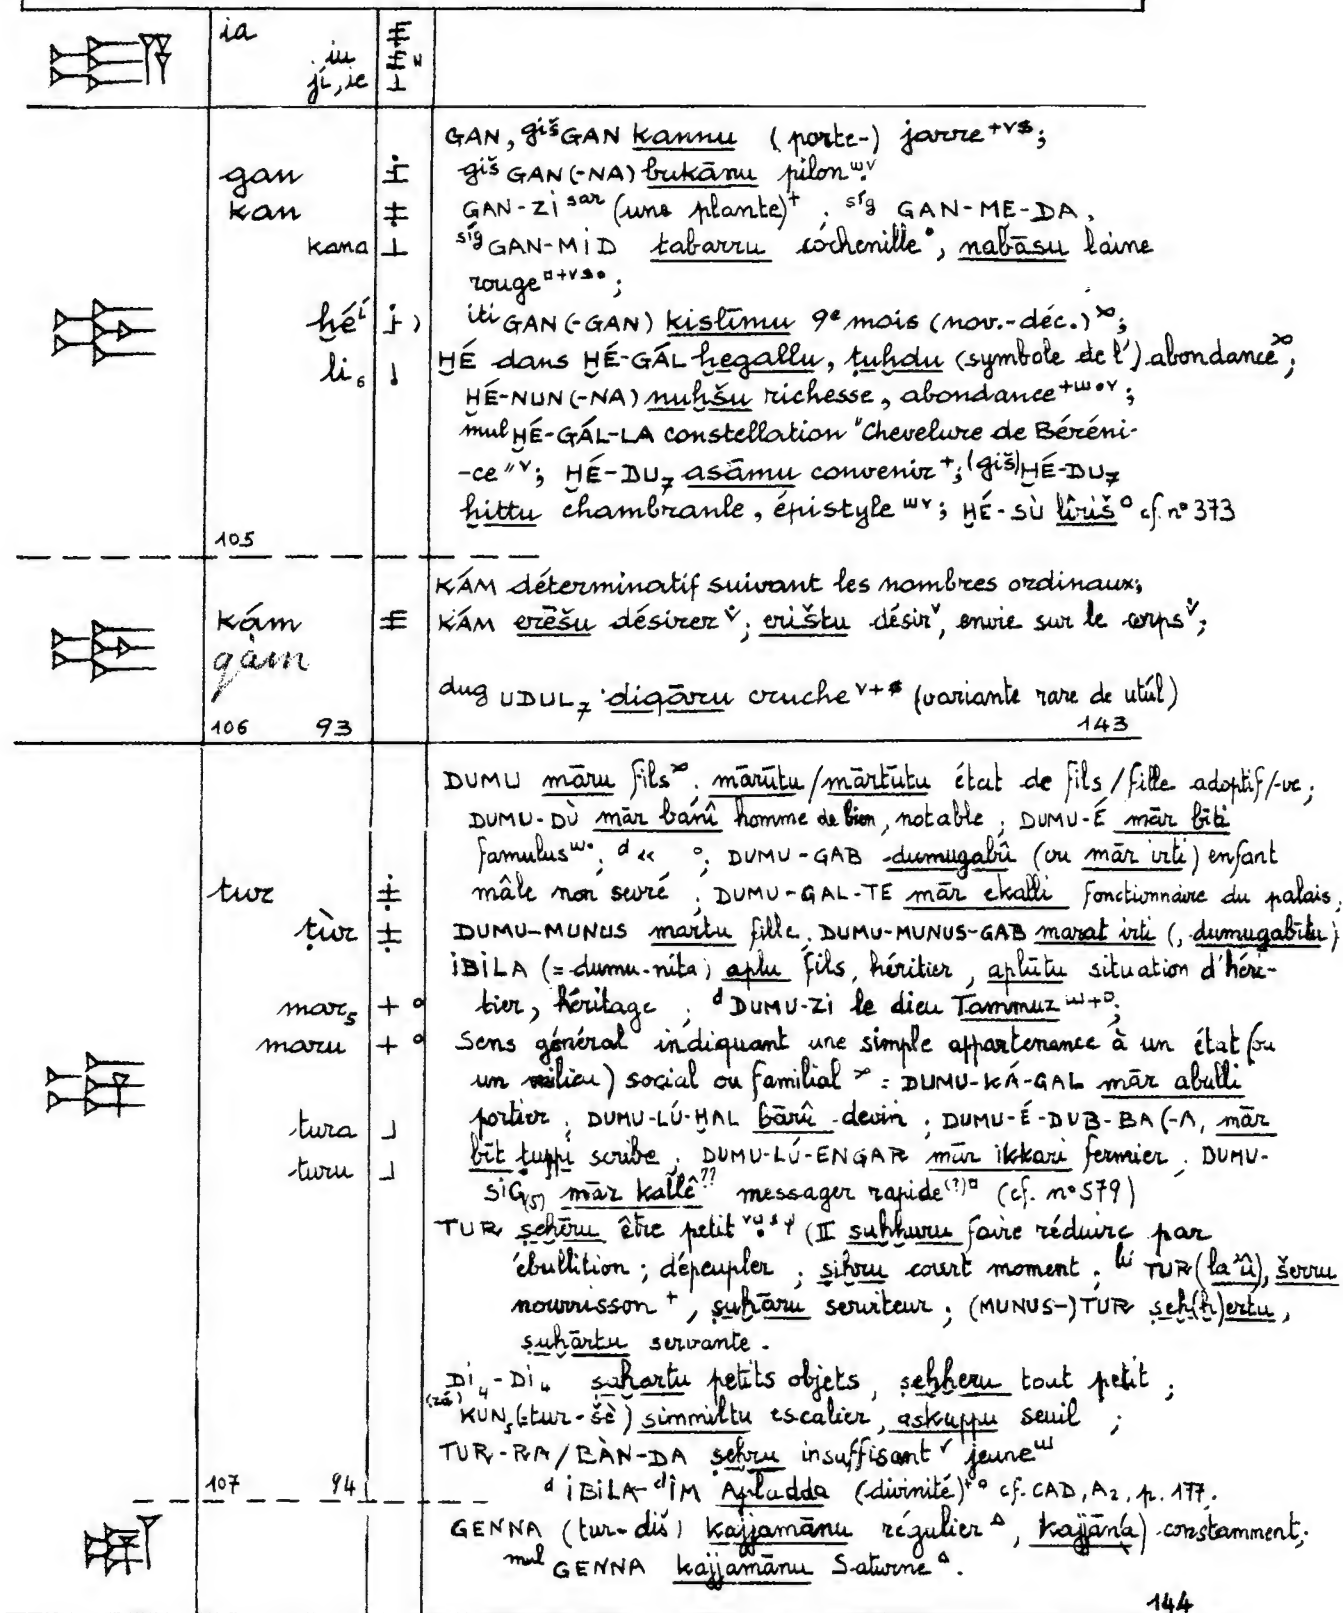 ia
iu
ji, ie
GAN, giš GAN kannu (porte-) jarre;
gan giš GAN(-NA) bukānu pilon
kan GAN-ZI sar (une plante), síg GAN-ME-DA,
kana síg GAN-MID tabarru cochenille, nabāsu laine
rouge;
ḫé iti GAN(-GAN) kislīmu 9e mois (nov.-déc.);
li₆ ḪÉ dans ḪÉ-GÁL ḫegallu, ṭuḫdu (symbole de l') abondance;
ḪÉ-NUN(-NA) nuḫšu richesse, abondance;
mul ḪÉ-GÁL-LA constellation "Chevelure de Béréni-
-ce"; ḪÉ-DU₇ asāmu convenir; (giš)ḪÉ-DU₇
ḫittu chambranle, épistyle; ḪÉ-SÙ lîriš cf. n° 373
105
KÁM déterminatif suivant les nombres ordinaux;
kám KÁM erēšu désirer; erištu désir, envie sur le corps;
gàm
dug UDUL₇ diqāru cruche (variante rare de utúl)
106 93 143
DUMU māru fils; mārūtu/mārtūtu état de fils/fille adoptif/-ve;
DUMU-DÙ mār banî homme de bien, notable; DUMU-É mār bīti
famulus; d «; DUMU-GAB dumugabû (ou mār irti) enfant
tur mâle non sevré; DUMU-GAL-TE mār ekalli fonctionnaire du palais;
ṭùr DUMU-MUNUS martu fille, DUMU-MUNUS-GAB marat irti (, dumugabītu)
IBILA (=dumu-nita) aplu fils, héritier, aplūtu situation d'héri-
mar₅ tier, héritage; d DUMU-ZI le dieu Tammuz;
maru Sens général indiquant une simple appartenance à un état (ou
un milieu) social ou familial: DUMU-KÁ-GAL mār abulli
tura portier; DUMU-LÚ-ḪAL bārû devin; DUMU-É-DUB-BA(-A, mār
turu bīt ṭuppi scribe; DUMU-LÚ-ENGAR mār ikkari fermier; DUMU-
SIG(5) mār kallê?? messager rapide(?) (cf. n° 579)
TUR ṣeḫēru être petit (II ṣuḫḫuru faire réduire par
ébullition; dépeupler; ṣiḫru court moment; lú TUR (la'û), šerru
nourrisson, ṣuḫāru serviteur; (MUNUS-)TUR ṣeḫ(ḫ)ertu,
ṣuḫārtu servante.
DI₄-DI₄ ṣaḫartu petits objets, ṣeḫḫeru tout petit;
(zá) KUN₅ (tur-šè) simmiltu escalier, askuppu seuil;
TUR-RA/BÀN-DA ṣeḫru insuffisant jeune
107 94 d IBILA-d IM Apladda (divinité) cf. CAD, A2, p. 177.
GENNA (tur-diš) kajjamānu régulier, kajjāna) constamment;
mul GENNA kajjamānu Saturne.
144